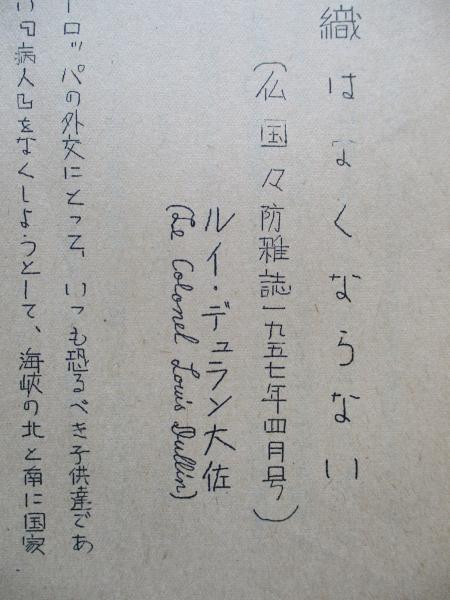 織はなくならない
(仏国々防雑誌一九五七年四月号)
ルイ・デュラン大佐
(Le Colonel Louis Dullin)
ーロッパの外交にとって、いつも恐るべき子供達であ
い『病人』をなくしようとして、海峡の北と南に国家